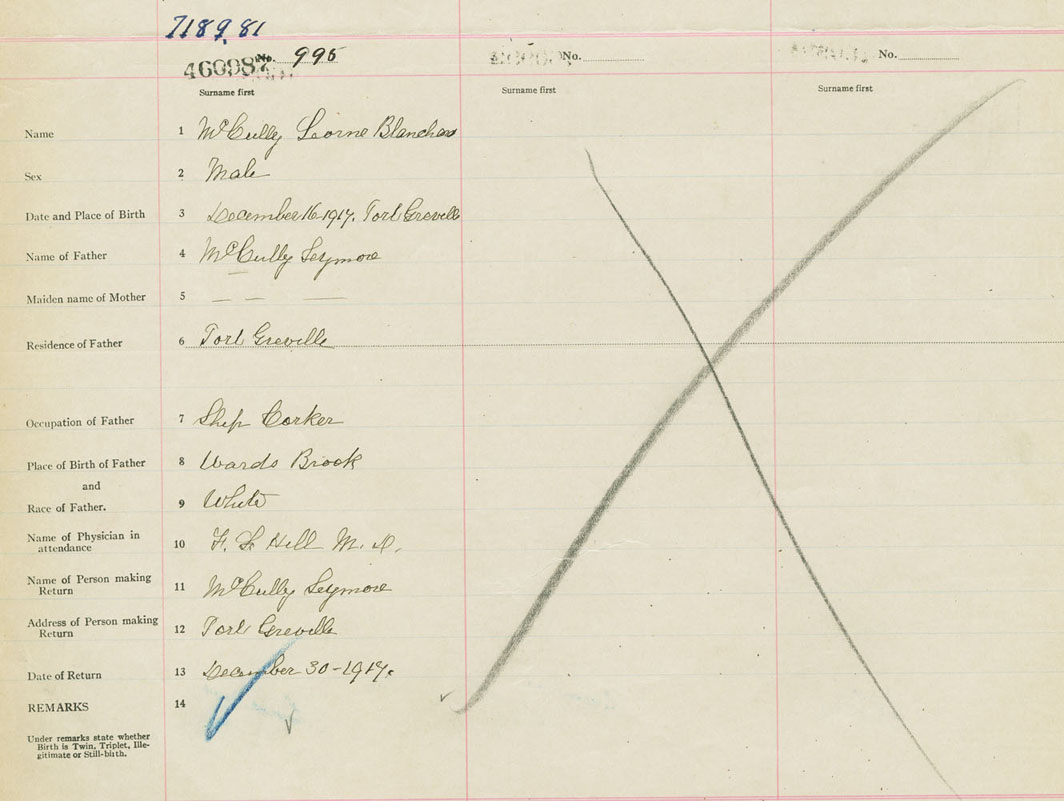 718981
460987 No. 995
No.
No.
Surname first
Surname first
Surname first
Name 1 McCully Lorne Blanchard
Sex 2 Male
Date and Place of Birth 3 December 16-1917. Port Greville
Name of Father 4 McCully Seymore
Maiden name of Mother 5 — — —
Residence of Father 6 Port Greville
Occupation of Father 7 Ship Corker
Place of Birth of Father 8 Wards Brook
and
Race of Father. 9 White
Name of Physician in
attendance 10 Hill M.D.
Name of Person making
Return 11 McCully Seymore
Address of Person making
Return 12 Port Greville
Date of Return 13 December 30-1917.
REMARKS 14
Under remarks state whether
Birth is Twin, Triplet, Ille-
gitimate or Still-birth.